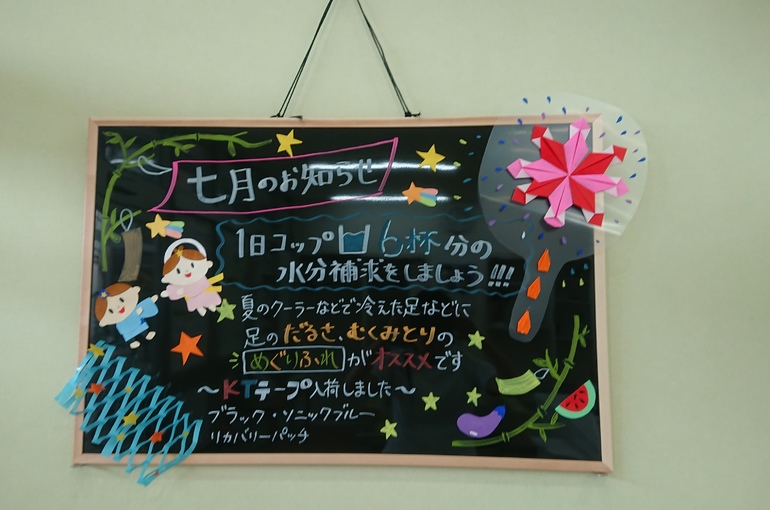 七月のお知らせ
1日コップ 6杯分の
水分補求をしましょう!!!
夏のクーラーなどで冷えた足などに
足のだるさ、むくみとりの
めぐりふれがオススメです
～KTテープ入荷しました～
ブラック・ソニックブルー
リカバリーパッチ